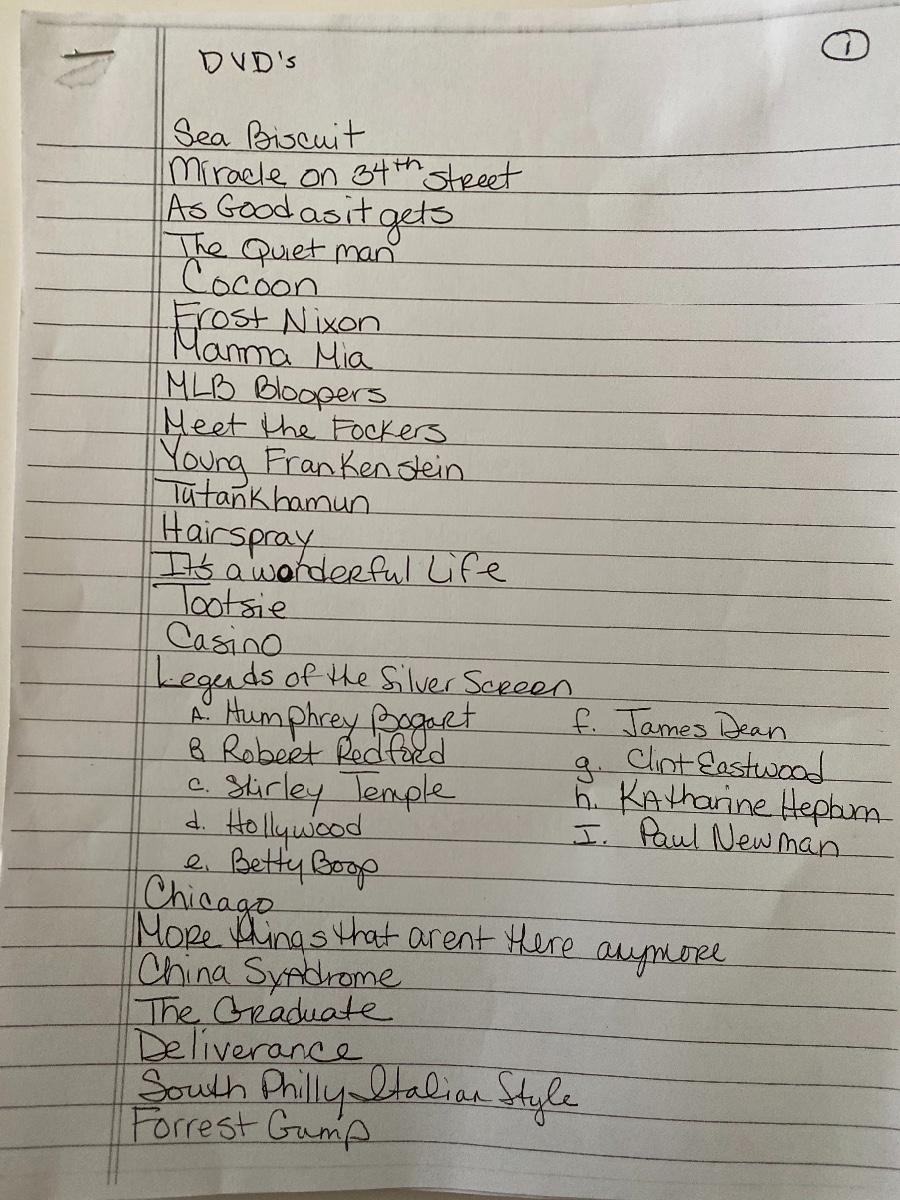 DVD's
1
Sea Biscuit
Miracle on 34th Street
As Good as it gets
The Quiet man
Cocoon
Frost Nixon
Mamma Mia
MLB Bloopers
Meet the Fockers
Young Frankenstein
Tutankhamun
Hairspray
It's a wonderful Life
Tootsie
Casino
Legends of the Silver Screen
A. Humphrey Bogart
B Robert Redford
c. Shirley Temple
d. Hollywood
e. Betty Boop
f. James Dean
g. Clint Eastwood
h. KAtharine Hepburn
I. Paul Newman
Chicago
More things that arent there anymore
China Syndrome
The Graduate
Deliverance
South Philly Italian Style
Forrest Gump